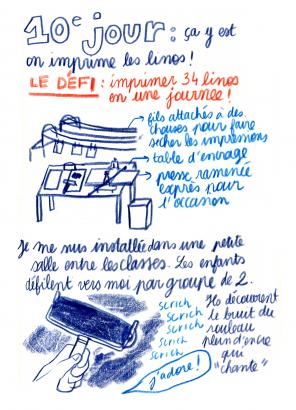 10e jour : ça y est
on imprime les linos !
LE DÉFI : imprimer 34 linos
en une journée !
fils attachés à des
chaises pour faire
sécher les impressions
table d'encrage
presse ramenée
exprès pour
l'occasion
Je me suis installée dans une petite
salle entre les classes. Les enfants
défilent vers moi par groupe de 2.
scrich
scrich
scrich
scrich
scrich
Ils découvrent
le bruit du
rouleau
plein d'encre
qui
"chante"
j'adore !